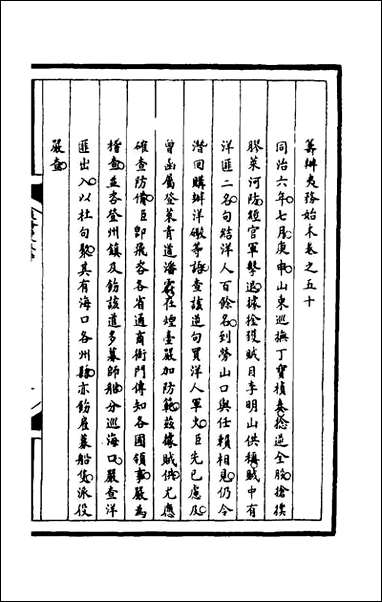 籌辦夷務始末卷之五十
同治六年七月庚申山東巡撫丁寶楨奏捻逆全股搶撲
膠萊河防經官軍擊退據捦獲賊目李明山供稱賊中有
洋匪二名句結洋人百餘名到勞山口與任賴相見仍令
潛回購辦洋礮等語查該逆句買洋人軍火臣先已慮及
曾函屬登萊青道潘霨在煙臺嚴加防範茲據賊供尤應
確查防備臣即飛咨各省通商衙門傳知各國領事嚴為
稽查並咨登州鎮及飭該道多募師船分巡海口嚴查洋
匪出入以杜句聚其有海口各州縣亦飭雇募船隻派役
嚴查